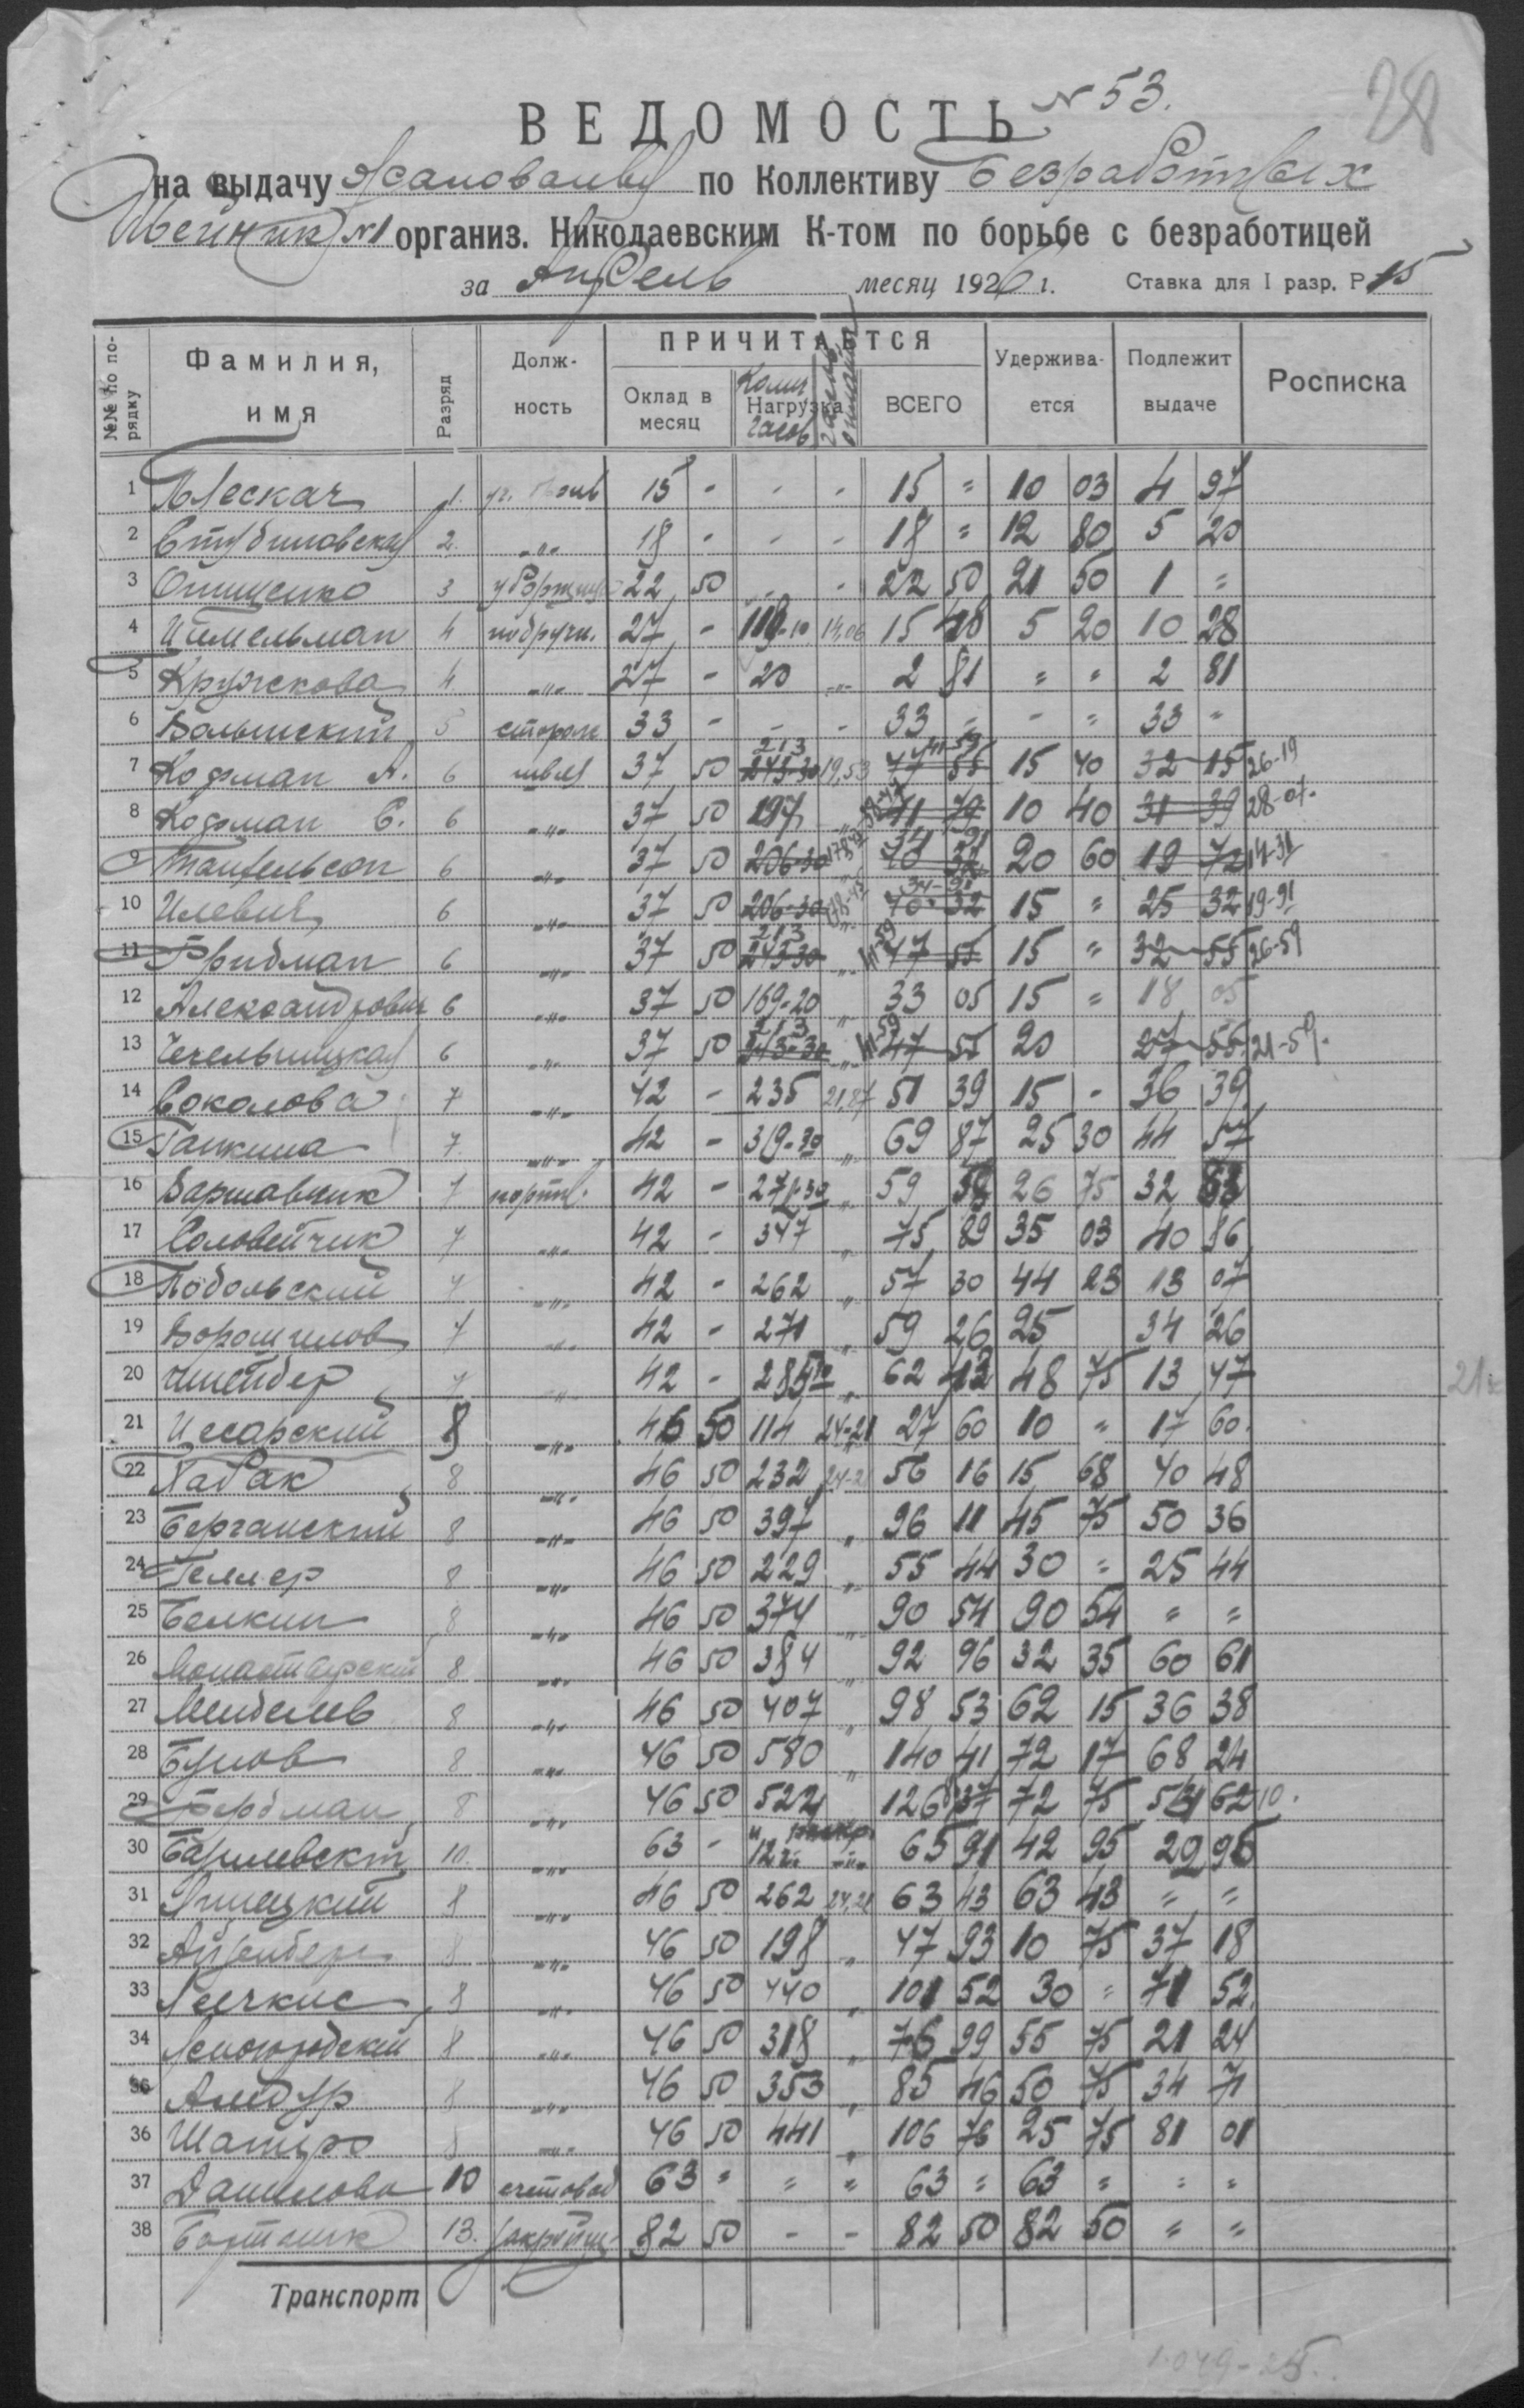 28
ВЕДОМОСТЬ N 53.
на выдачу жалования по Коллективу безработных
Швейник №1 организ. Николаевским К-том по борьбе с безработицей
за Апрель месяц 1926 г. Ставка для I разр. Р. 15
№№ по порядку Фамилия, имя Разряд Должность ПРИЧИТАЕТСЯ Оклад в месяц Колич. Нагрузка часов ВСЕГО Удерживается Подлежит выдаче Росписка
1 Плескач 1. 15 - - - 15 = 10 03 4 97
2 2. -"- 18 - - - 18 = 12 80 5 20
3 Онищенко 3 уборщица 22 50 - 22 50 21 50 1 =
4 Ительман 4 подручн. 27 - 119-10 14,06 15 48 5 20 10 28
5 Кружкова 4. -"- 27 - 20 -"- 2 81 = = 2 81
6 5 сторож 33 - - - 33 = - = 33 =
7 Кофман А. 6 швея 37 50 213 243-30 19,53 41-59 47 55 15 40 32 15 26-19
8 Кофман С. 6 -"- 37 50 197 41 79 10 40 31 39 28-07
9 6 -"- 37 50 206-30 34 91 40 32 20 60 19 72 14-31
10 Илевич 6 -"- 37 50 206-30 34-91 40 32 15 = 25 32 19-91
11 Фридман 6 -"- 37 50 213 243-30 -"- 41-59 47 55 15 = 32 55 26-59
12 Александрович 6 -"- 37 50 169-20 -"- 33 05 15 = 18 05
13 Чечельницкая 6 -"- 37 50 213 243-30 -"- 41-59 47 55 20 27 55 21-59.
14 Соколова 7 -"- 42 - 235 21,87 51 39 15 - 36 39
15 Галкина 7. -"- 42 - 319-30 -"- 69 87 25 30 44 57
16 Варшавчик 7 портн. 42 - 271-30 -"- 59 26 75 32
17 Соловейчик 7 -"- 42 - 347 -"- 75 89 35 03 40 86
18 Подольский 7 -"- 42 - 262 -"- 57 30 44 23 13 07
19 Ворошилов 7 -"- 42 - 271 -"- 59 26 25 34 26
20 7 -"- 42 - 285 -"- 62 48 75 13 47
21 Цесарский 8 -"- 46 50 114 24-21 27 60 10 = 17 60.
22 Хабак 8 -"- 46 50 232 24-21 56 16 15 68 40 48
23 Берганский 8 -"- 46 50 397 -"- 96 11 45 75 50 36
24 Геллер 8 -"- 46 50 229 -"- 55 44 30 = 25 44
25 Белкин 8 -"- 46 50 374 -"- 90 54 90 54 = =
26 Монастырский 8 -"- 46 50 384 -"- 92 96 32 35 60 61
27 Менделев 8 -"- 46 50 407 -"- 98 53 62 15 36 38
28 Бунов 8 -"- 46 50 580 -"- 140 41 72 17 68 24
29 Фердман 8 -"- 46 50 522 126 37 72 75 62 10.
30 Барилевский 10. -"- 63 - 65 91 42 95 29 96
31 8 -"- 46 50 262 24,21 63 43 63 43 = =
32 Айзенберг 8 -"- 46 50 198 -"- 47 93 10 75 37 18
33 8 -"- 46 50 440 -"- 101 52 30 = 71 52
34 Ясногродский 8 -"- 46 50 318 -"- 76 99 55 75 21 24
35 8 -"- 46 50 353 -"- 85 46 50 75 34 71
36 Шапиро 8 -"- 46 50 441 -"- 106 76 25 75 81 01
37 Данилова 10 счетовод 63 = = = 63 = 63 = = =
38 Бортник 13. закройщ. 82 50 - - 82 50 82 50 = =
Транспорт